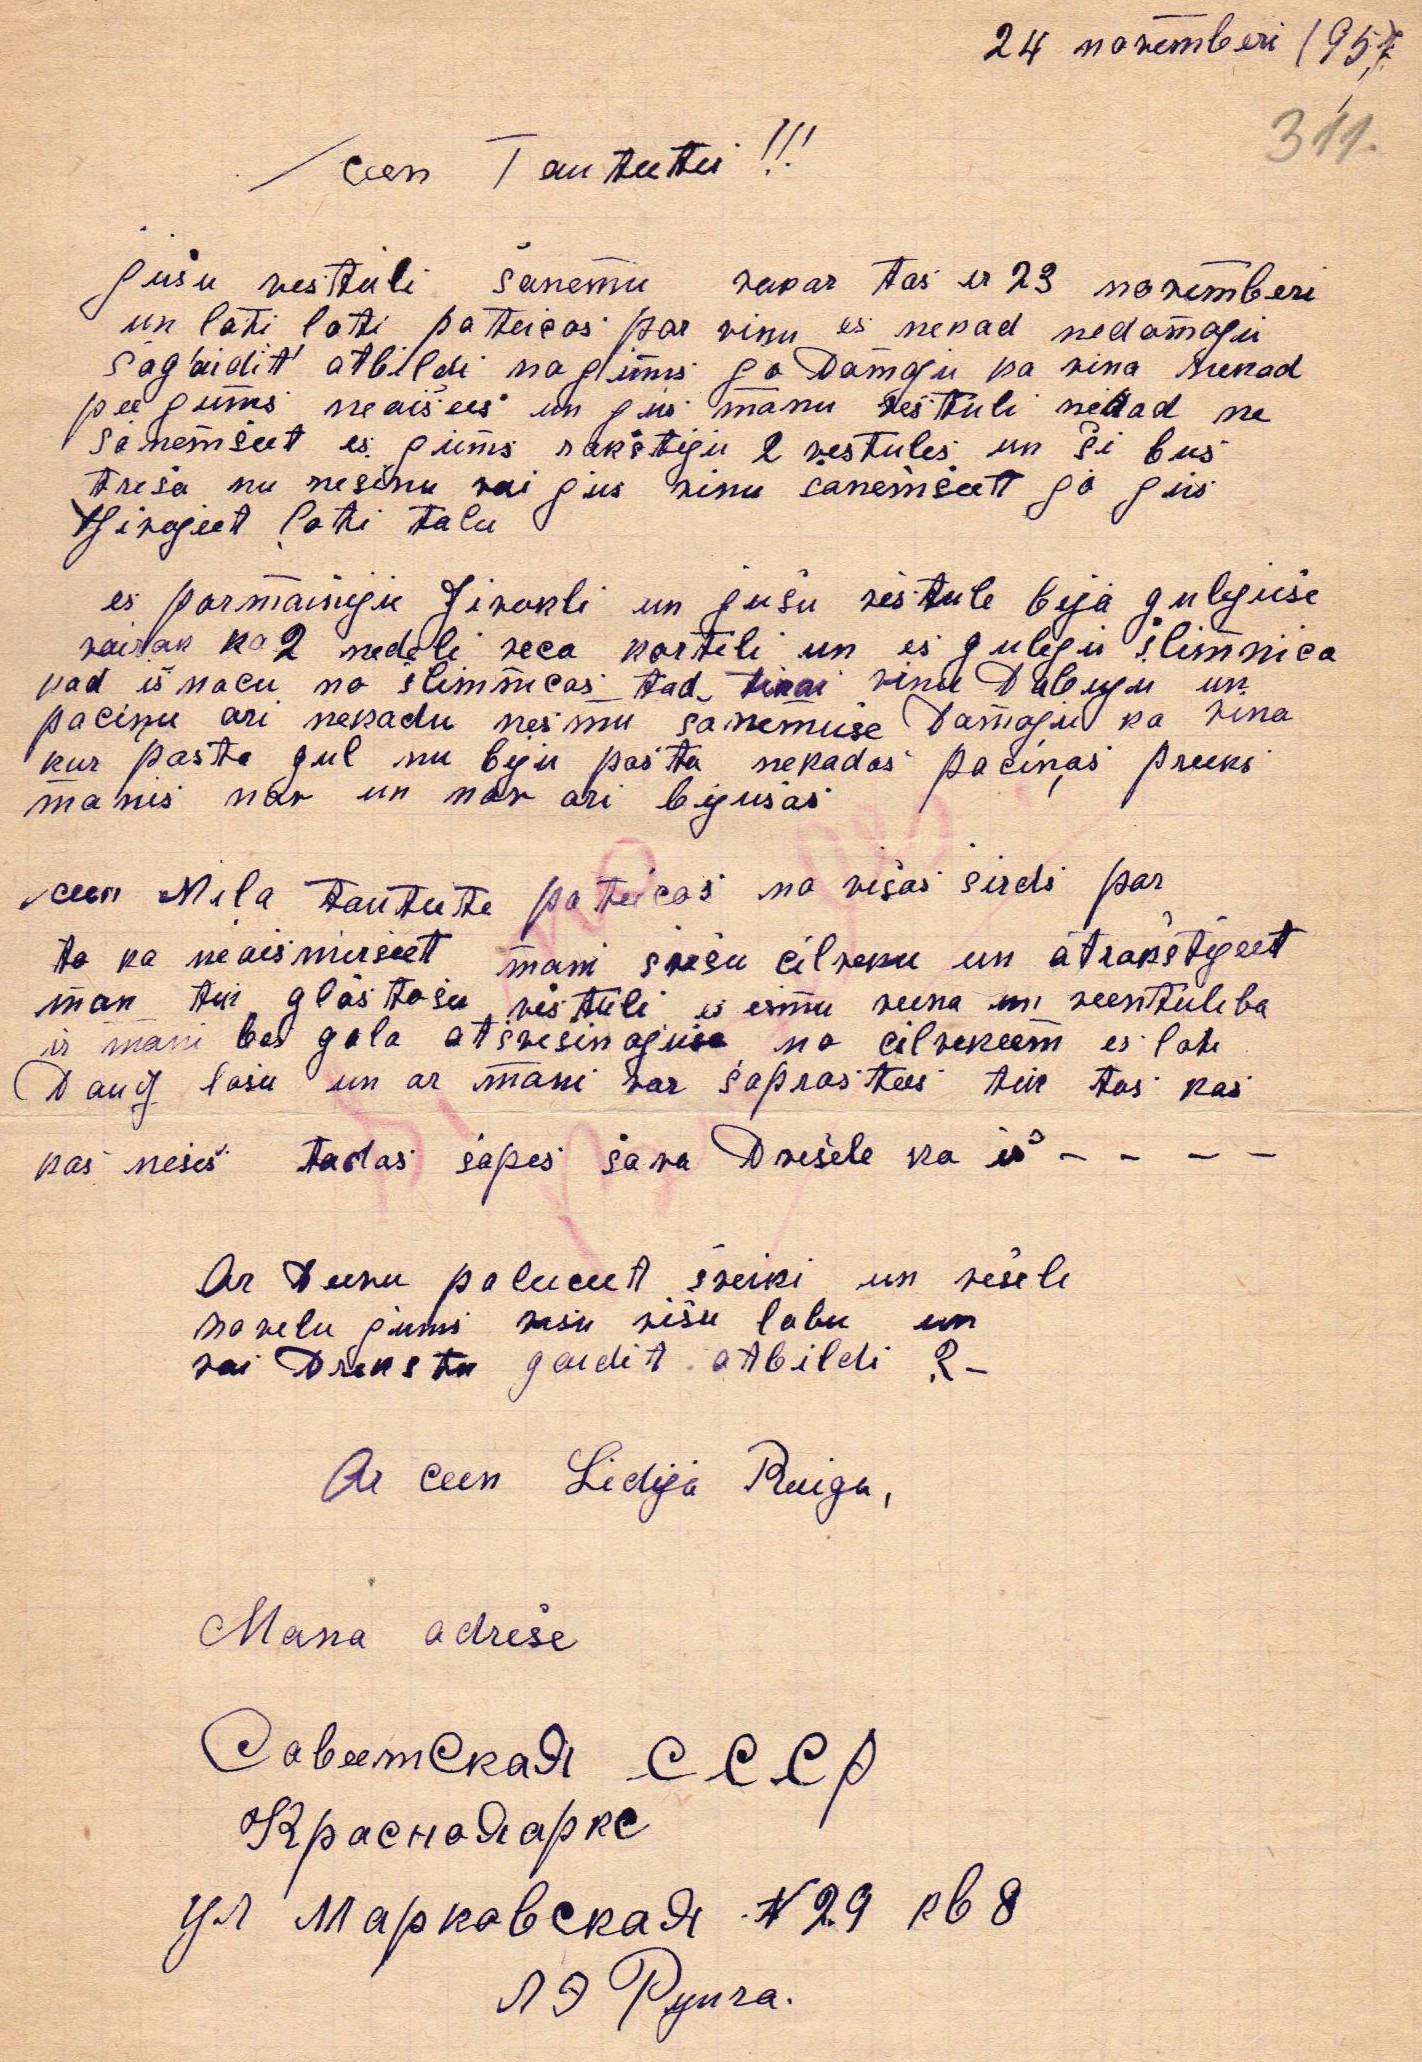 24 novemberi 1957
311.
ceen Tautieti!!!
jušu vestuli šanemu vakar tas ir 23 novemberi
un loti loti pateicos par vinu es nekad nedomaju
sagaidit atbildi no jums jo Domaju ka vina nekad
pee jums neaisees un jus manu vestuli nekad ne
sanemseet es jums rakstiju 2 vestules un ši bus
treša nu nesinu vai jus vinu sanemseet jo jus
Jivojeet loti talu
es parmainiju Jivokli un jušu vestule bija gulejuse
vairak ka 2 nedeli veca korteli un es guleju slimnica
kad isnacu no slimnicas tad tikai vinu Dabuju un
pacinu ari nekadu nesmu sanemuse Domaju ka vina
kur pasta gul nu biju pasta nekadas paciņas preeks
manis nav un nav ari bijusas
ceen Mila tautiete pateicos no visas sirds par
to ka neaismirseet mani svešu cilveku un atrakstijeet
man tik glaštošu vestuli es esmu veena un veentuliba
ir mani bes gala atsvesinajuse no cilvekeem es loti
Dauj lasu un ar mani var saprastees tik tas kas
kas neses tadas sapes sava Dvesele ka es - - - -
Ar Deevu paleceet sveiki un veseli
novelu jums visu visu labu un
vai Drikstu gaidit atbildi ? -
Ar ceen Lidija Ruiga,
Mana adrese
Совеетская СССР
Красноярке
ул Марковская N 29 кв 8
Л Э Руига.